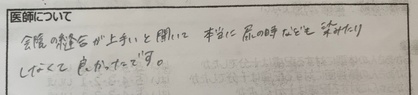 医師について
会陰の縫合が上手いと聞いて 本当に 尿の時なども 染みたり
しなくて 良かったです。